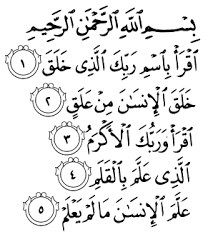 بِسْمِ اللَّهِ الرَّحْمَٰنِ الرَّحِيمِ
اقْرَأْ بِاسْمِ رَبِّكَ الَّذِي خَلَقَ ١
خَلَقَ الْإِنْسَٰنَ مِنْ عَلَقٍ ٢
اقْرَأْ وَرَبُّكَ الْأَكْرَمُ ٣
الَّذِي عَلَّمَ بِالْقَلَمِ ٤
عَلَّمَ الْإِنْسَٰنَ مَا لَمْ يَعْلَمْ ٥